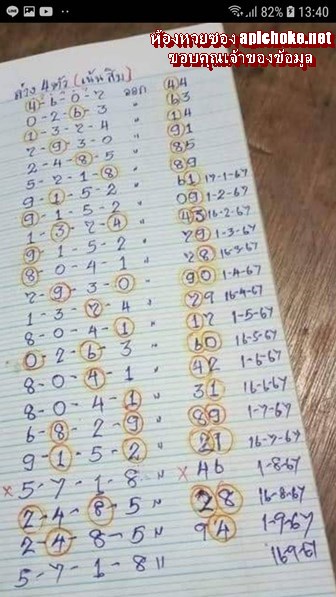 82% 13:40
ห้องหวยซอง aplchoke.net
ขอบคุณเจ้าของข้อมูล
ล่าง 4 ตัว (เน้นสิบ)
4-6-0-2 ออก 44
0-2-6-3 " 63
1-3-2-4 " 14
2-9-3-0 " 91
2-4-8-5 " 85
5-2-1-8 " 89
9-1-5-2 " 61 17-1-67
9-1-5-2 " 09 1-2-67
1-3-2-4 " 43 16-2-67
9-1-5-2 " 29 1-3-67
8-0-4-1 " 28 16-3-67
2-9-3-0 " 90 1-4-67
1-3-2-4 " 29 16-4-67
8-0-4-1 " 12 1-5-67
0-2-6-3 " 60 16-5-67
8-0-4-1 " 42 1-6-67
8-0-4-1 " 31 16-6-67
6-8-2-9 " 89 1-7-67
9-1-5-2 " 21 16-7-67
× 5-7-1-8 " × 46 1-8-67
2-4-8-5 " 28 16-8-67
2-4-8-5 " 94 1-9-67
5-7-1-8 " 16 9-67